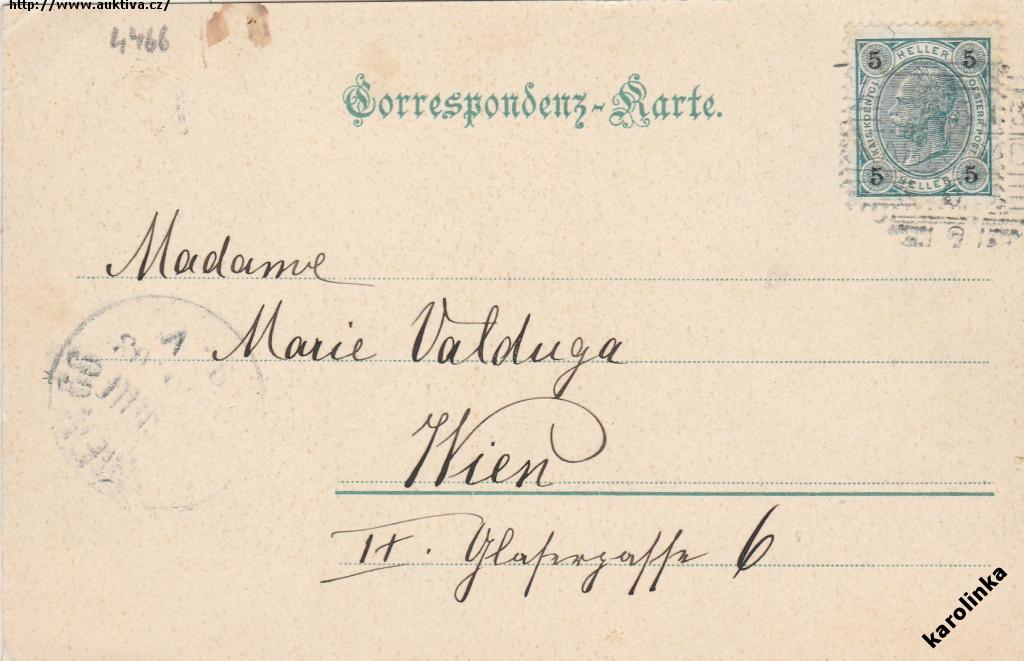 http://www.auktiva.cz/
4466
Correspondenz-Karte.
5 HELLER 5
KAIS.KÖN.
OESTERR.POST
5 HELLER 5
Madame
Marie Valduga
Wien
IX. Glasergasse 6
WIEN
karolinka